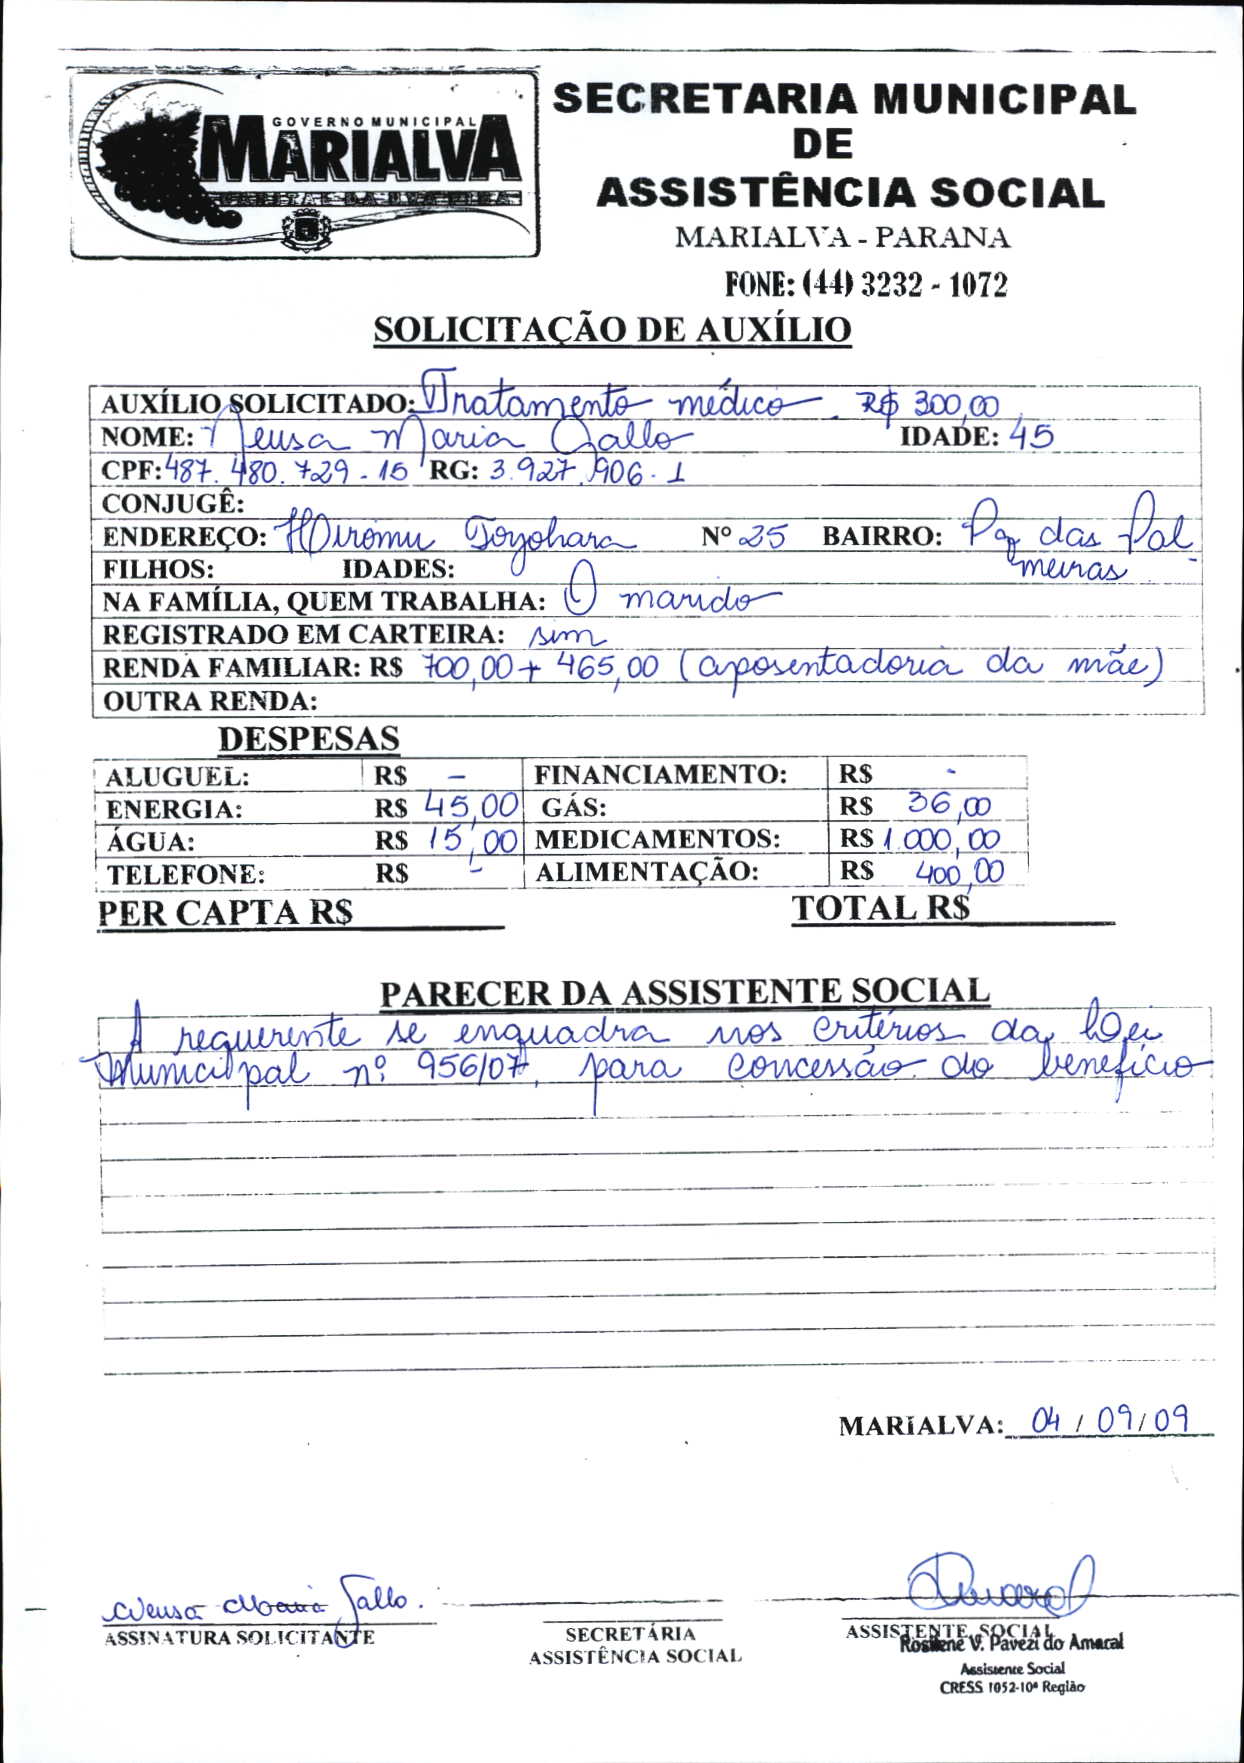 GOVERNO MUNICIPAL
MARIALVA
CAPITAL DA UVA FINA
SECRETARIA MUNICIPAL
DE
ASSISTÊNCIA SOCIAL
MARIALVA - PARANA
FONE: (44) 3232 - 1072
SOLICITAÇÃO DE AUXÍLIO
AUXÍLIO SOLICITADO: Tratamento médico R$ 300,00
NOME: Neusa Maria Gallo IDADE: 45
CPF: 487.480.729-15 RG: 3.927.906-1
CONJUGÊ:
ENDEREÇO: Hiromu Toyohara Nº 25 BAIRRO: Pq das Pal
meiras
FILHOS: IDADES:
NA FAMÍLIA, QUEM TRABALHA: O marido
REGISTRADO EM CARTEIRA: sim
RENDA FAMILIAR: R$ 700,00 + 465,00 (aposentadoria da mãe)
OUTRA RENDA:
DESPESAS
ALUGUEL: R$ - FINANCIAMENTO: R$ -
ENERGIA: R$ 45,00 GÁS: R$ 36,00
ÁGUA: R$ 15,00 MEDICAMENTOS: R$ 1.000,00
TELEFONE: R$ - ALIMENTAÇÃO: R$ 400,00
PER CAPTA R$ TOTAL R$
PARECER DA ASSISTENTE SOCIAL
A requerente se enquadra nos critérios da Lei
Municipal nº 956/07, para concessão do benefício
MARIALVA: 04 / 09 / 09
Neusa Maria Gallo.
ASSINATURA SOLICITANTE
SECRETÁRIA
ASSISTÊNCIA SOCIAL
ASSISTENTE SOCIAL
Rosilene V. Pavezi do Amaral
Assistente Social
CRESS 1052-10ª Região